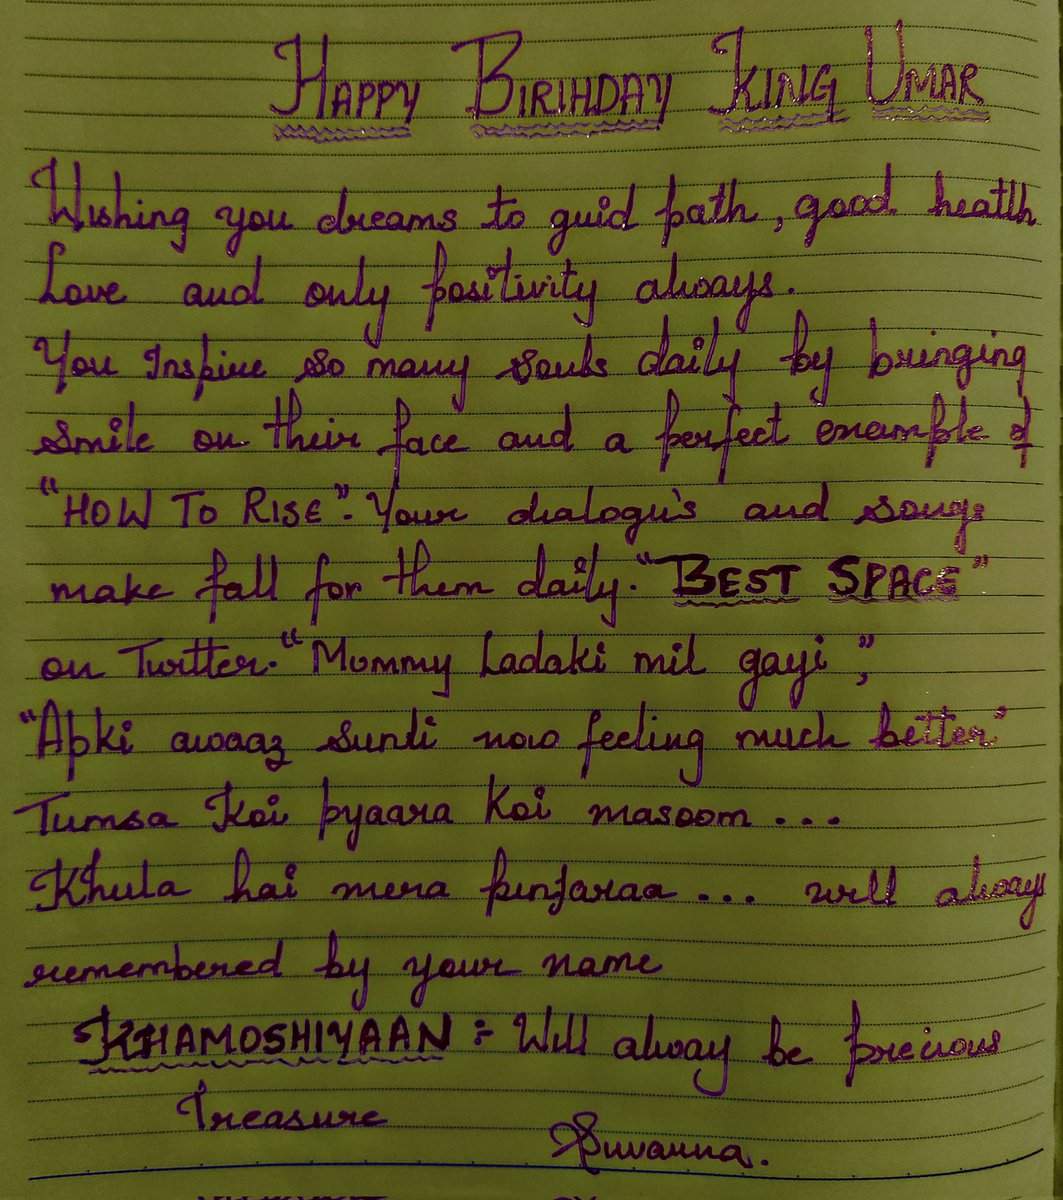 HAPPY BIRIHDAY KING UMAR
Wishing you dreams to guid path, good heatlh
Love and only positivity always.
You Inspire so many souls daily by bringing
smile on their face and a perfect example of
"HOW TO RISE". Your dialogu's and songs
make fall for them daily. "BEST SPACE"
on Twitter. "Mummy Ladaki mil gayi",
"Apki awaaz sunli now feeling much better"
Tumsa Koi pyaara Koi masoom ...
Khula hai mera pinjaraa ... will always
remembered by your name
KHAMOSHIYAAN :- Will alway be precious
Treasure
Suvarna.